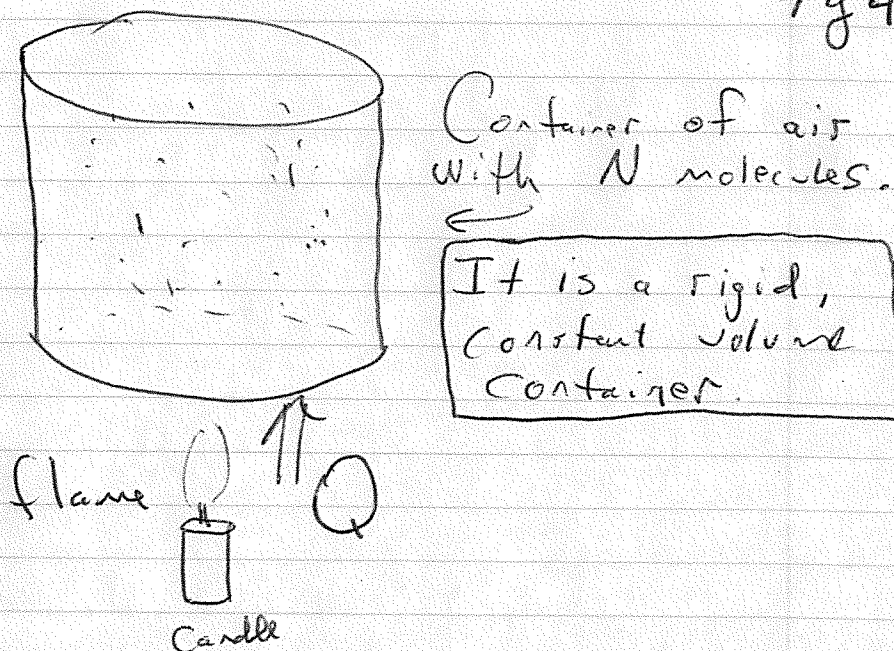 Container of air
with N molecules.
It is a rigid,
constant volume
container.
flame
Q
Candle